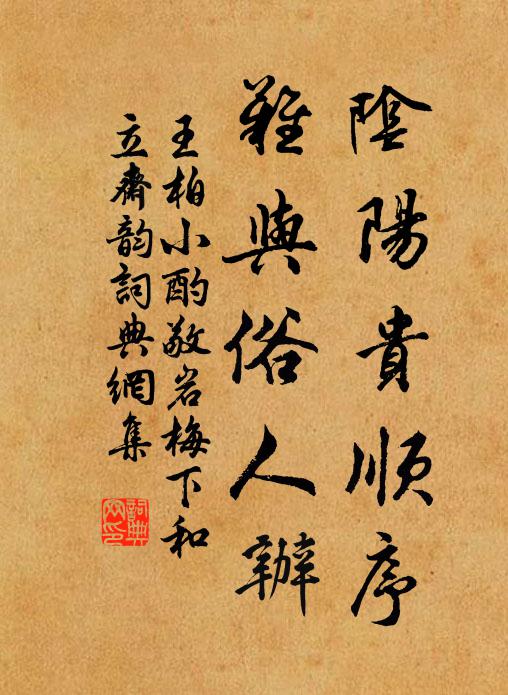 陰陽貴順序
難與俗人辦
王柏小酌敬岩梅下和
立齋韵詞典網集
詞典網印